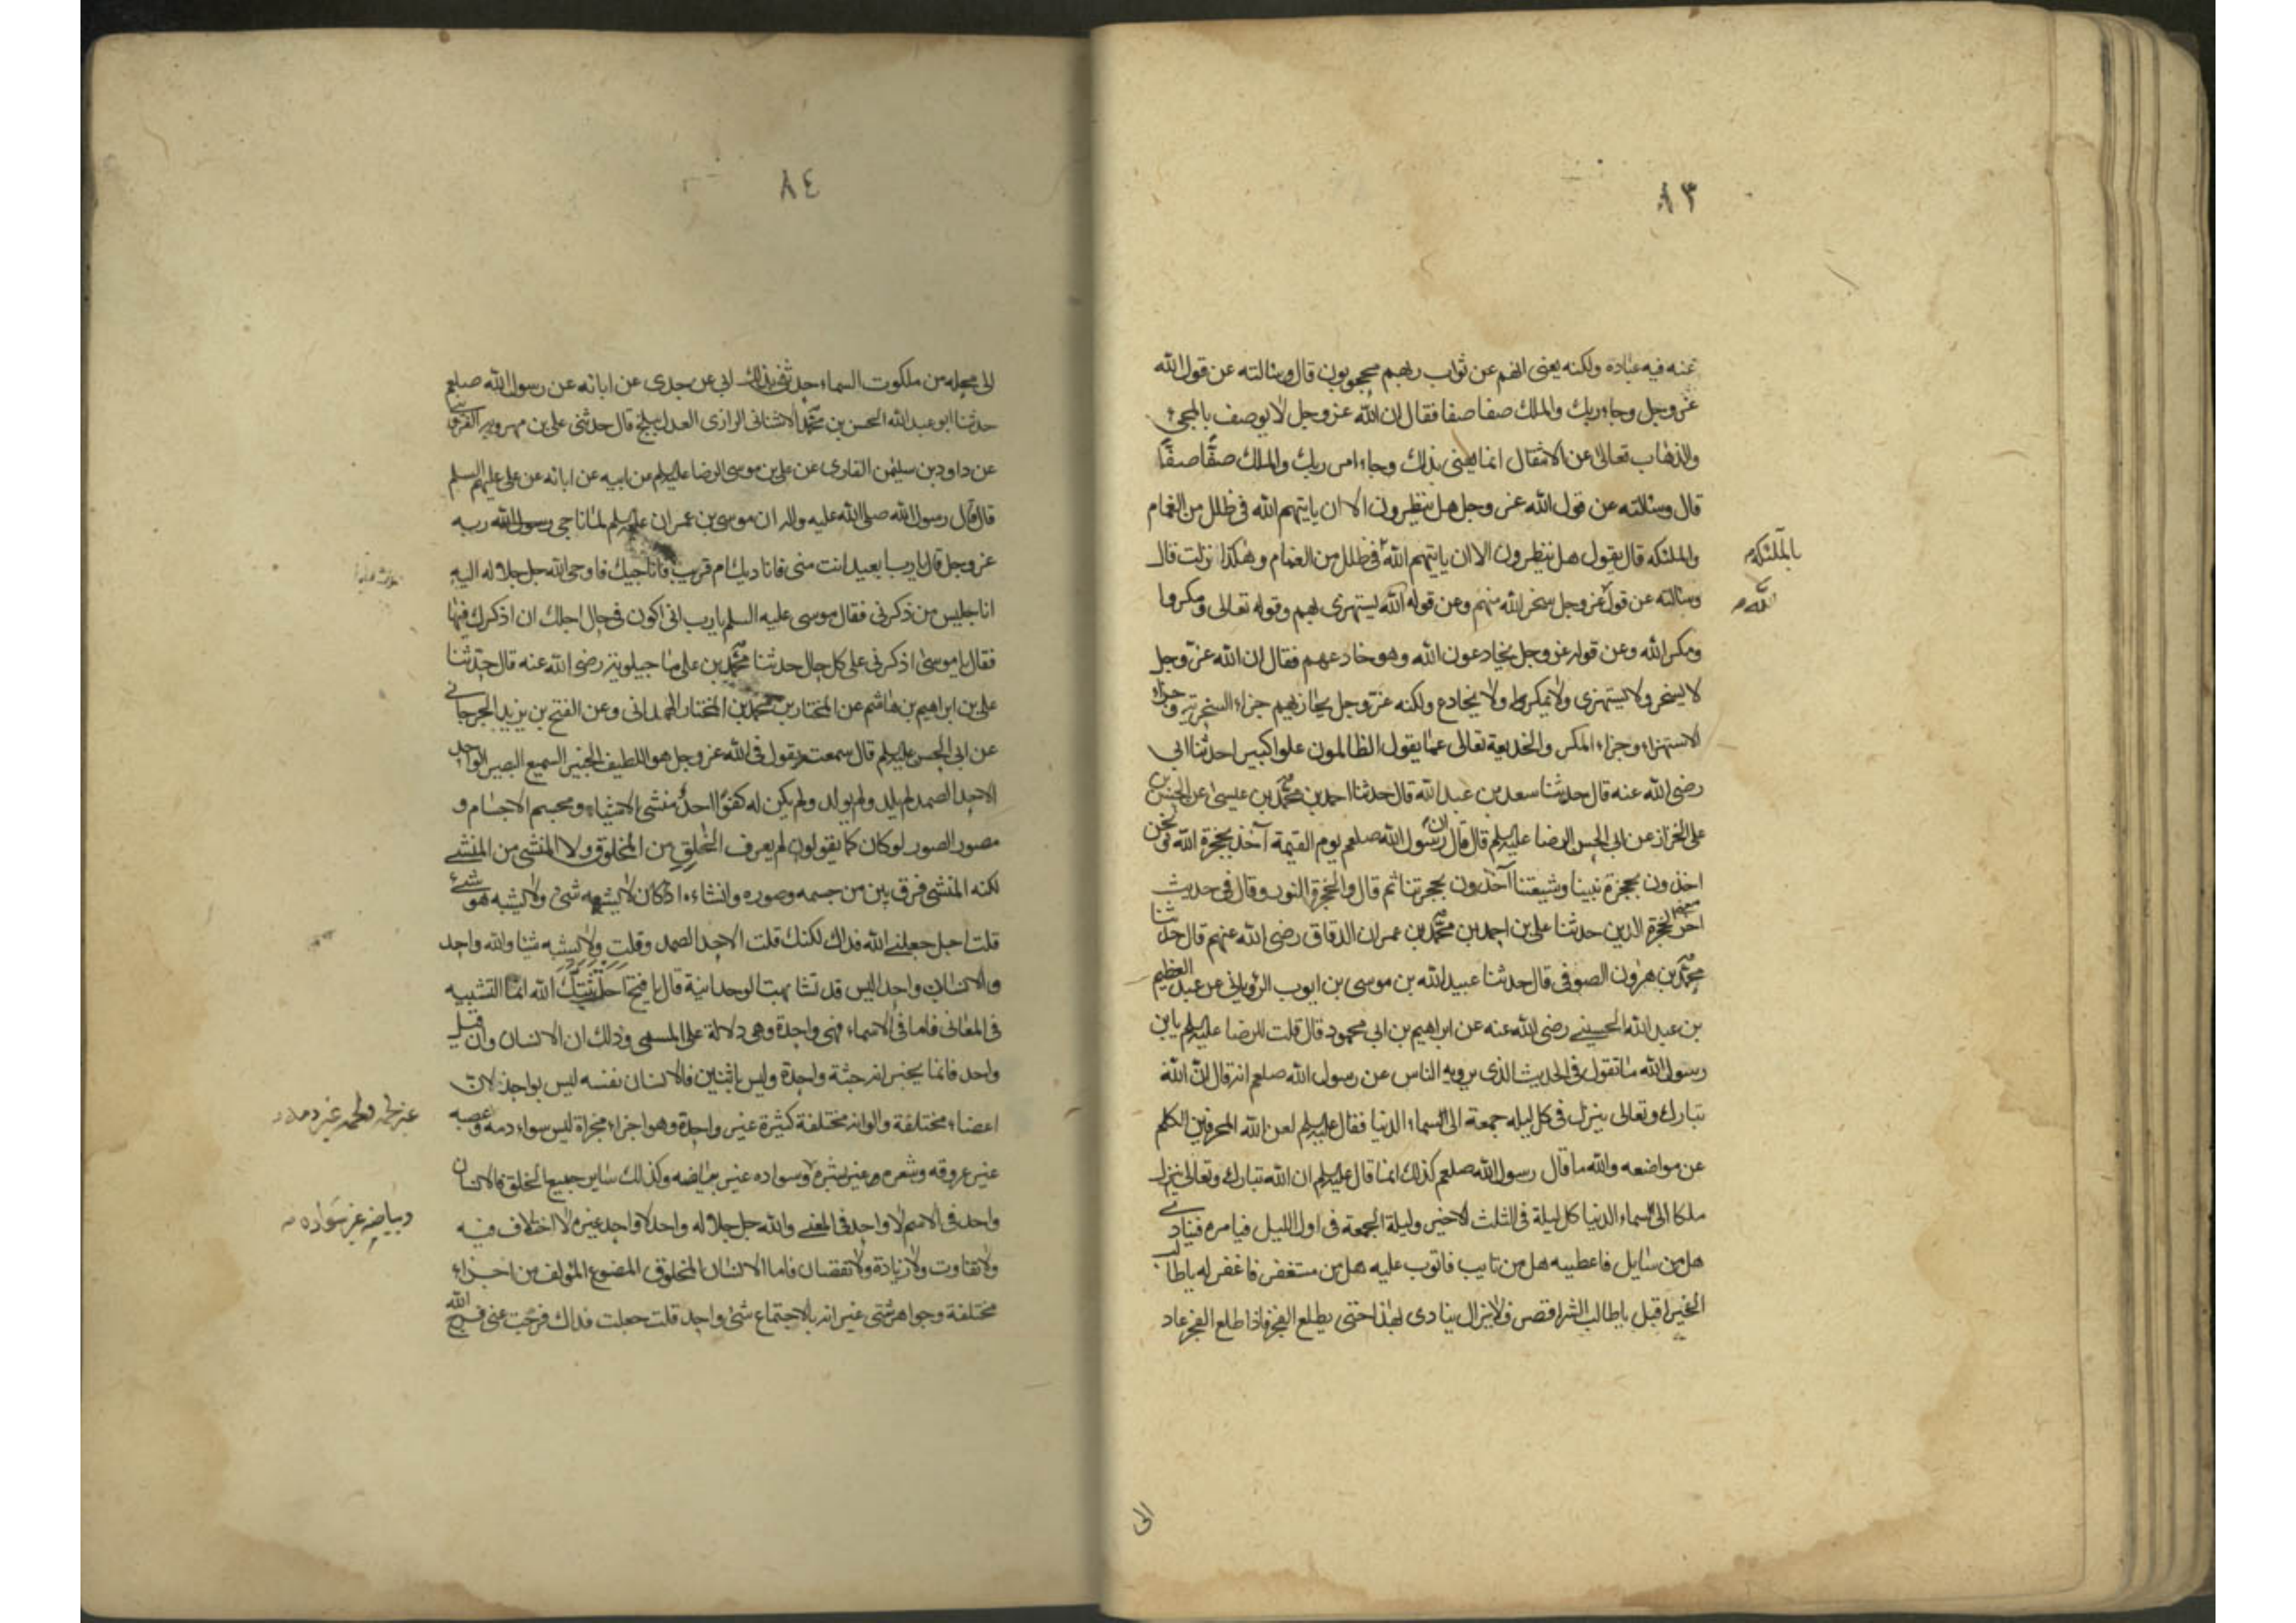 ٨٣
عنه فيه عباده ولكنه يعنى انهم عن ثواب ربهم محجوبون قال وسالته عن قول الله
عز وجل وجاء ربك والملك صفا صفا فقال ان الله عز وجل لا يوصف بالمجىء
والذهاب تعالى عن الانتقال انما يعنى بذلك وجاء امر ربك والملك صفًّا صفًّا
قال وسالته عن قول الله عز وجل هل ينظرون الا ان ياتيهم الله فى ظلل من الغمام
والملئكه قال يقول هل ينظرون الا ان ياتيهم الله فى ظلل من الغمام وهكذا نزلت قال
بالملئكه
وسالته عن قول عز وجل سخر الله منهم وعن قوله الله يستهزى بهم وقوله تعالى ومكروا
الله
ومكر الله وعن قوله عز وجل يخادعون الله وهو خادعهم فقال ان الله عز وجل
لا يسخر ولا يستهزى ولا يمكر ولا يخادع ولكنه عز وجل يجازيهم جزاء السخرية وجزاء
الاستهزاء وجزاء المكر والخديعة تعالى عما يقول الظالمون علوا كبيرا حدثنا ابى
رضى الله عنه قال حدثنا سعد بن عبد الله قال حدثنا احمد بن محمد بن عيسى عن الحسن بن
على الخزاز عن ابى الحسن الرضا عليه السلم قال قال ان رسول الله صلعم يوم القيمة آخذ بحجزة الله ونحن
اخذون بحجزة نبينا وشيعتنا آخذون بحجزتنا ثم قال والحجزة النور وقال فى حديث
اخر الحجزة الدين حدثنا على بن احمد بن محمد بن عمران الدقاق رضى الله عنهم قال حدثنا
محمد بن هرون الصوفى قال حدثنا عبيد الله بن موسى بن ايوب الرويانى عن عبد العظيم
بن عبد الله الحسينى رضى الله عنه عن ابراهيم بن ابى محمود قال قلت للرضا عليه السلم يا بن
رسول الله ما تقول فى الحديث الذى يرويه الناس عن رسول الله صلعم انه قال ان الله
تبارك وتعالى ينزل فى كل ليله جمعة الى السماء الدنيا فقال عليه السلم لعن الله المحرفين الكلم
عن مواضعه والله ما قال رسول الله صلعم كذلك انما قال عليه السلم ان الله تبارك وتعالى ينزل
ملكا الى السماء الدنيا كل ليلة فى الثلث الاخير وليلة الجمعة فى اول الليل فيامره فينادى
هل من سايل فاعطيه هل من تايب فاتوب عليه هل من مستغفر فاغفر له يا طالب
الخير اقبل يا طالب الشر اقصر فلا يزال ينادى بهذا حتى يطلع الفجر فاذا طلع الفجر عاد
الى
٨٤
الى محله من ملكوت السماء حدثنى بذلك ابى عن جدى عن ابائه عن رسول الله صلعم
حدثنا ابو عبد الله الحسين بن محمد الاشنانى الرازى العدل ببلخ قال حدثنى على بن مهرويه القزوينى
عن داود بن سليمن القارى عن على بن موسى الرضا عليه السلم عن ابيه عن ابائه عن على عليهم السلم
قال قال رسول الله صلى الله عليه واله ان موسى بن عمران عليه السلم لما ناجى ربه
عز وجل قال يا رب ابعيد انت منى فاناديك ام قريب فاناجيك فاوحى الله جل جلاله اليه
انا جليس من ذكرنى فقال موسى عليه السلم يا رب انى اكون فى حال اجلك ان اذكرك فيها
فقال يا موسى اذكرنى على كل حال حدثنا محمد بن على ماجيلويه رضى الله عنه قال حدثنا
على بن ابراهيم بن هاشم عن المختار بن محمد بن المختار الهمدانى وعن الفتح بن يزيد الجرجانى
عن ابى الحسن عليه السلم قال سمعته يقول فى الله عز وجل هو اللطيف الخبير السميع البصير الواحد
الاحد الصمد لم يلد ولم يولد ولم يكن له كفوًا احدٌ منشى الاشياء ومجسم الاجسام و
مصور الصور لو كان كما يقولون لم يعرف الخلق من المخلوق ولا المنشى من المنشى
لكنه المنشى فرق بين من جسمه وصوره وانشاءه اذ كان لا يشبهه شىء ولا يشبه هو شىء
قلت اجل جعلنى الله فداك لكنك قلت الاحد الصمد وقلت ولا يشبه شيئا والله واحد
والانسان واحد اليس قد تشابهت الوحدانية قال يا فتح احلت ثبتك الله انما التشبيه
فى المعانى فاما فى الاسماء فهى واحدة وهى دلالة على المسمى وذلك ان الانسان وان قيل
واحد فانما يخبر انه جثة واحدة وليس باثنين فالانسان نفسه ليس بواحد لان
اعضاءه مختلفة والوانه مختلفة كثيرة غير واحدة وهو اجزاء مجزاة ليس سواء دمه وعصبه
غير لحمه ولحمه غير دمه
غير عروقه وشعره غير بشره وسواده غير بياضه وكذلك ساير جميع الخلق فالانسان
وبياضه غير سواده
واحد فى الاسم لا واحد فى المعنى والله جل جلاله واحد لا واحد غيره لا اختلاف فيه
ولا تفاوت ولا زيادة ولا نقصان فاما الانسان المخلوق المصنوع المولف من اجزاء
مختلفة وجواهر شتى غير انه بالاجتماع شىء واحد قلت جعلت فداك فرجت عنى فرج الله